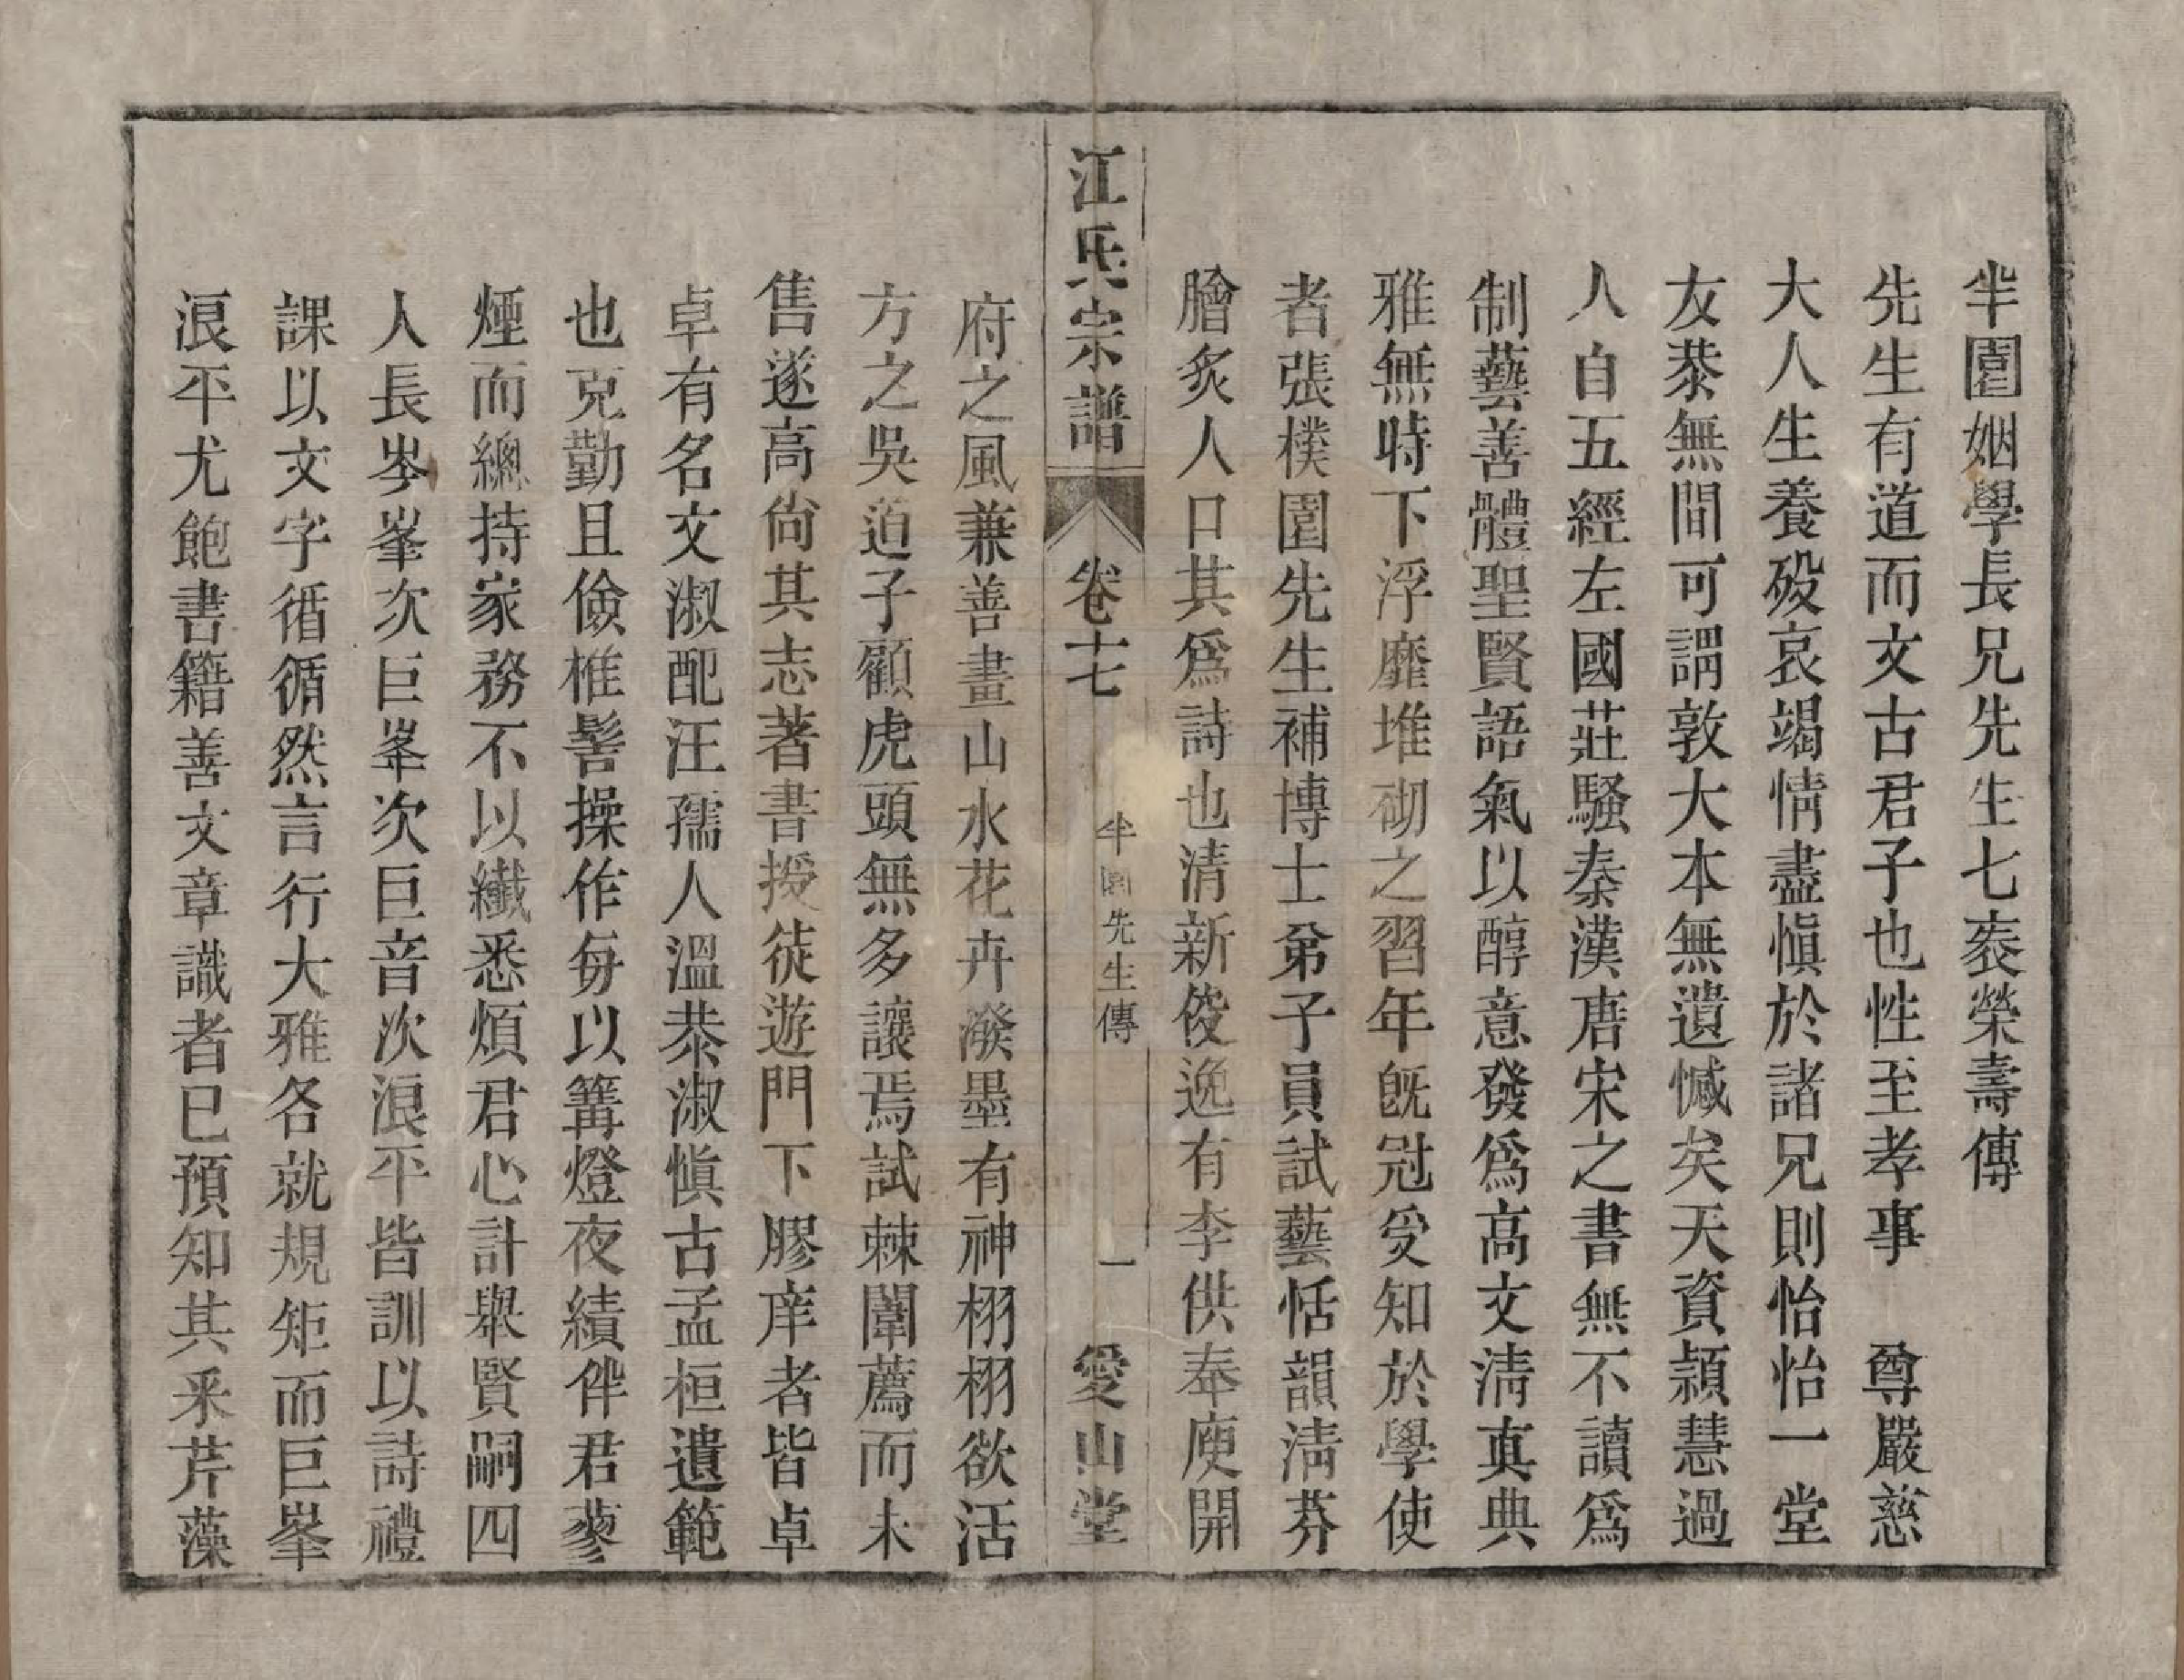 半園姻學長兄先生七袠榮壽傳
先生有道而文古君子也性至孝事　尊嚴慈
大人生養歿哀竭情盡愼於諸兄則怡怡一堂
友恭無間可謂敦大本無遺憾矣天資頴慧過
人自五經左國莊騷秦漢唐宋之書無不讀爲
制藝善體聖賢語氣以醇意發爲高文淸真典
雅無時下浮靡堆砌之習年旣冠受知於學使
者張樸園先生補博士弟子員試藝恬韻淸芬
膾炙人口其爲詩也清新俊逸有李供奉庾開
江氏宗譜　卷十七　半園先生傳　一　愛山堂
府之風兼善畫山水花卉潑墨有神栩栩欲活
方之吳道子顧虎頭無多讓焉試棘闈薦而未
售遂高尙其志著書授徒遊門下膠庠者皆卓
卓有名文淑配汪孺人溫恭淑愼古孟桓遺範
也克勤且儉椎髻操作每以篝燈夜績伴君藜
煙而總持家務不以纖悉煩君心計舉賢嗣四
人長岑峯次巨峯次巨音次浪平皆訓以詩禮
課以文字循循然言行大雅各就規矩而巨峯
浪平尤飽書籍善文章識者已預知其釆芹藻